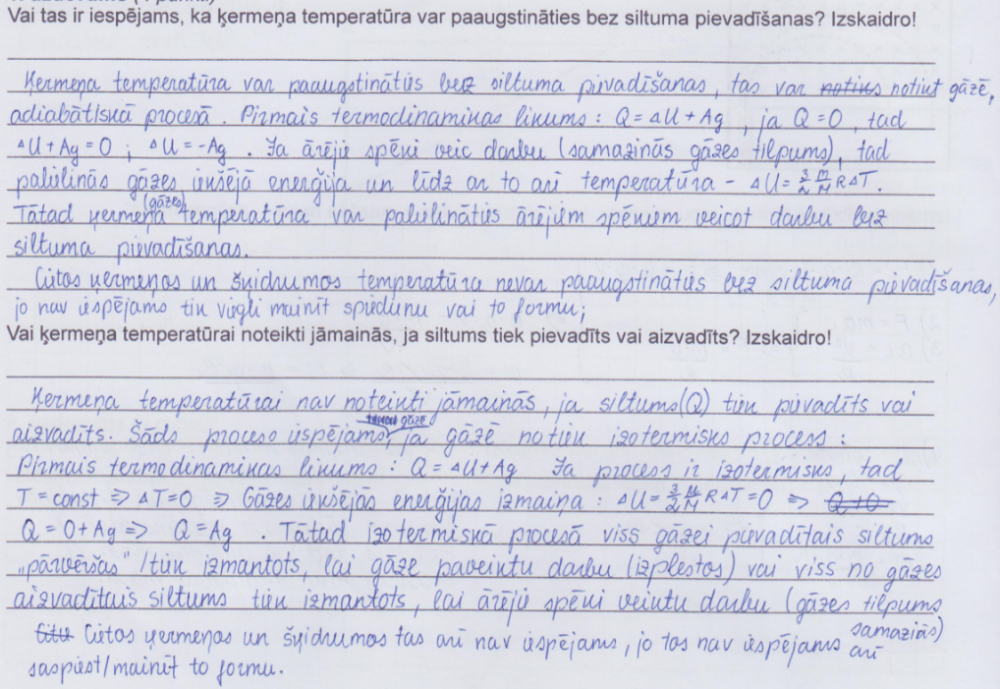 Vai tas ir iespējams, ka ķermeņa temperatūra var paaugstināties bez siltuma pievadīšanas? Izskaidro!
Ķermeņa temperatūra var paaugstināties bez siltuma pievadīšanas, tas var notikt gāzē,
adiabātiskā procesā. Pirmais termodinamikas likums: Q = ΔU + Ag, ja Q = 0, tad
ΔU + Ag = 0 ; ΔU = -Ag. Ja ārējie spēki veic darbu (samazinās gāzes tilpums), tad
palielinās gāzes iekšējā enerģija un līdz ar to arī temperatūra - ΔU = 3/2 m/M RΔT.
Tātad ķermeņa (gāzes) temperatūra var palielināties ārējiem spēkiem veicot darbu bez
siltuma pievadīšanas.
Cietos ķermeņos un šķidrumos temperatūra nevar paaugstināties bez siltuma pievadīšanas,
jo nav iespējams tik viegli mainīt spiedienu vai to formu;
Vai ķermeņa temperatūrai noteikti jāmainās, ja siltums tiek pievadīts vai aizvadīts? Izskaidro!
Ķermeņa temperatūrai nav noteikti jāmainās, ja siltums (Q) tiek pievadīts vai
aizvadīts. Šāds process iespējams, ja gāzē notiek izotermisks process:
Pirmais termodinamikas likums: Q = ΔU + Ag Ja process ir izotermisks, tad
T = const => ΔT = 0 => Gāzes iekšējās enerģijas izmaiņa: ΔU = 3/2 m/M RΔT = 0 =>
Q = 0 + Ag => Q = Ag. Tātad izotermiskā procesā viss gāzei pievadītais siltums
„pārvēršas"/tiek izmantots, lai gāze paveiktu darbu (izplestos) vai viss no gāzes
aizvadītais siltums tiek izmantots, lai ārējie spēki veiktu darbu (gāzes tilpums
samaziās)
Cietos ķermeņos un šķidrumos tas arī nav iespējams, jo tos nav iespējams arī
saspiest/mainīt to formu.